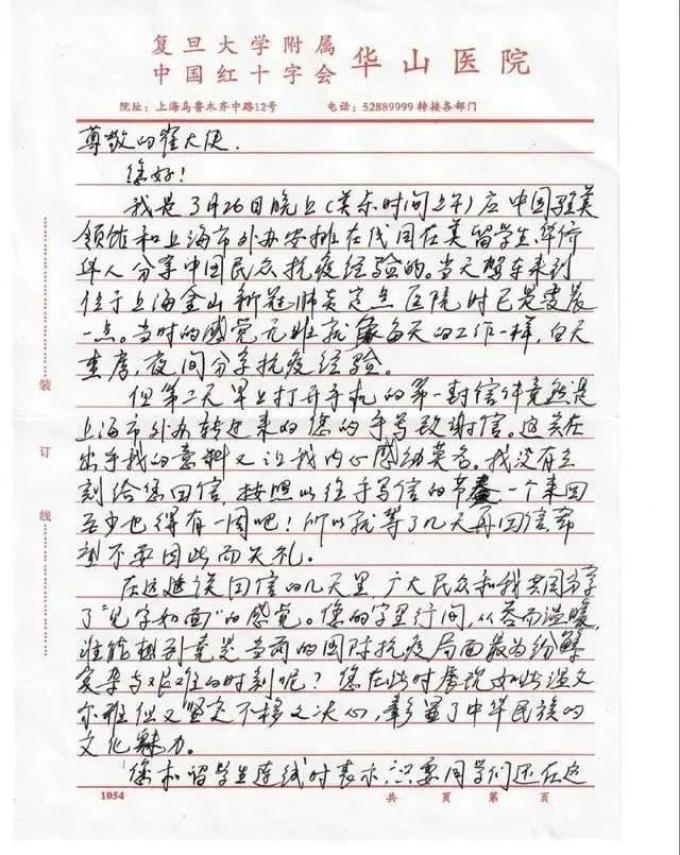 复旦大学附属
中国红十字会 华山医院
院址：上海乌鲁木齐中路12号 电话：52889999转接各部门
尊敬的崔大使，
您好！
我是3月26日晚上（美东时间上午）应中国驻美
领馆和上海市外办安排在线国在美留学生、华侨
华人分享中国民众抗疫经验的。当天驾车来到
位于上海金山新冠肺炎定点医院时已是凌晨
一点。当时的感觉无非就像每天的工作一样，白天
查房，夜间分享抗疫经验。
但第二天早上打开手机的第一封信件竟然是
上海市外办转过来的您的手写致谢信。这实在
出乎我的意料又让我内心感动莫名。我没有立
刻给您回信，按照以往手写信的节奏一个来回
至少也得有一周吧！所以就等了几天再回信希
望不要因此而失礼。
在这延误回信的几天里，广大民众和我共同分享
了“见字如面”的感觉。您的字里行间，从容而温暖，
谁能想到竟是当前的国际抗疫局面最为纷繁
复杂与艰难的时刻呢？您在此时展现如此温文
尔雅但又坚定不移之决心，彰显了中华民族的
文化魅力。
您和留学生连线时表示，只要同学们还在这
装
订
线
1054 共 页 第 页